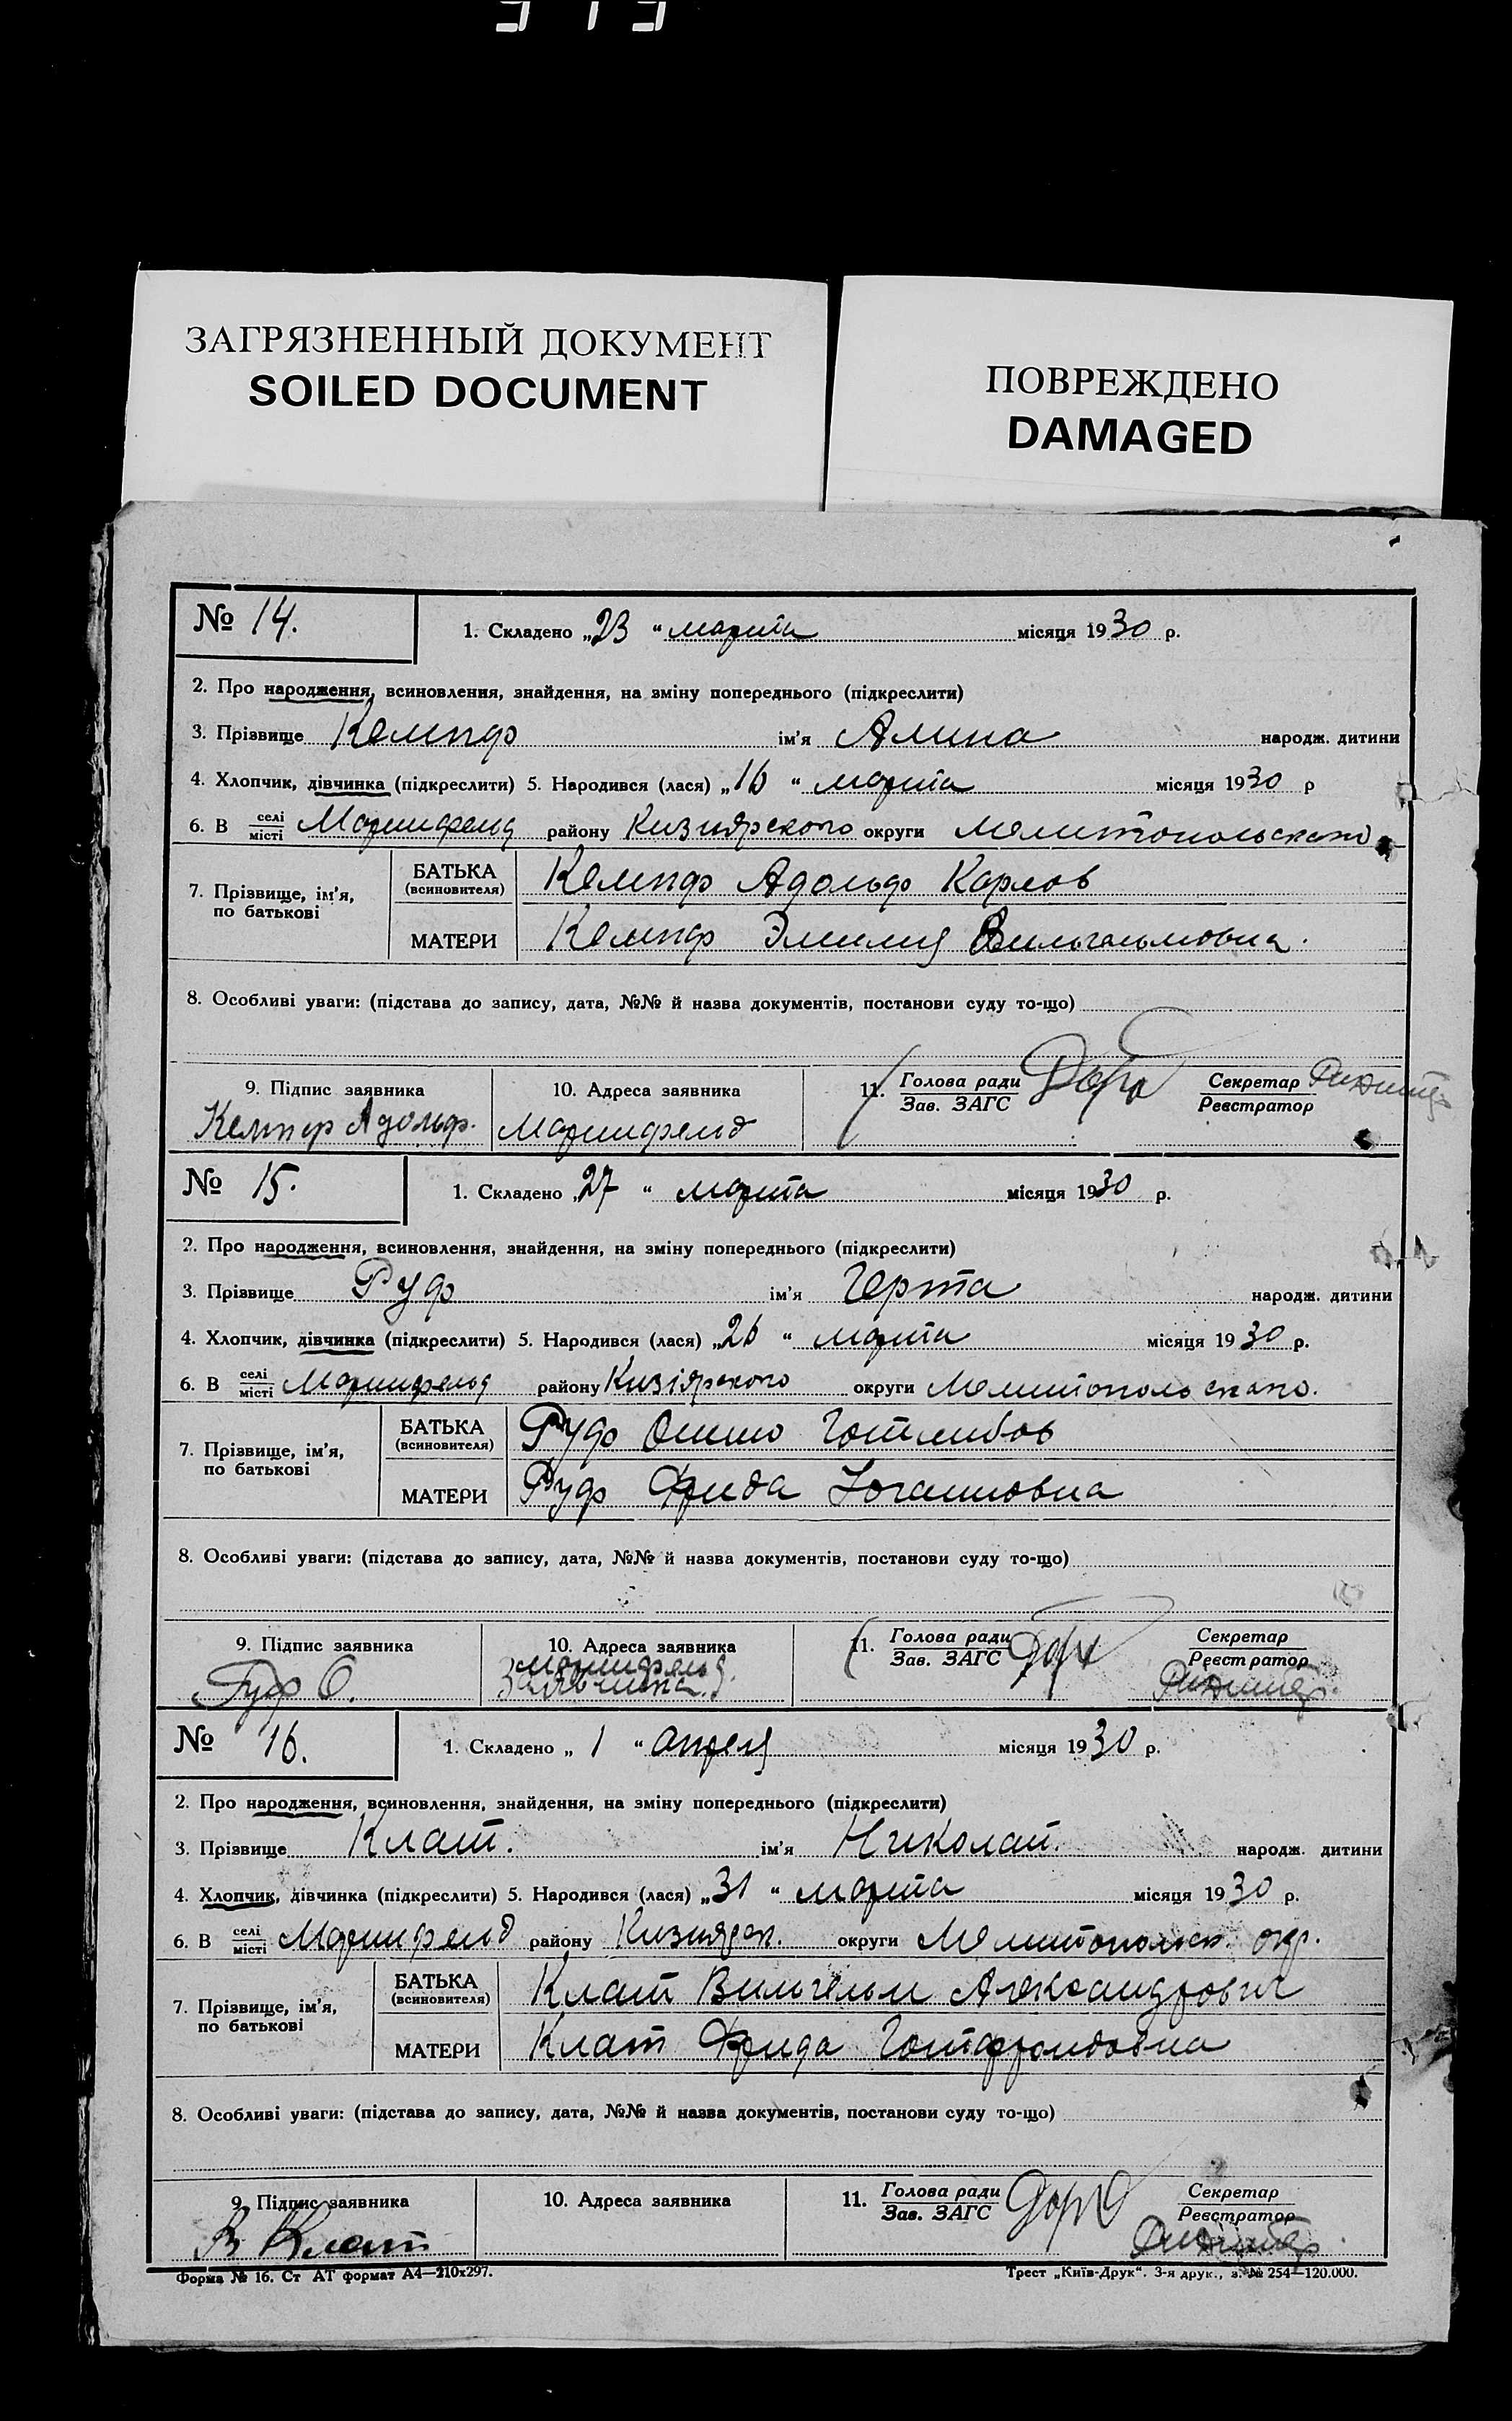 ЗАГРЯЗНЕННЫЙ ДОКУМЕНТ
SOILED DOCUMENT
ПОВРЕЖДЕНО
DAMAGED
№ 14. 1. Складено „23 “ марта місяця 1930 р.
2. Про народження, всиновлення, знайдення, на зміну попереднього (підкреслити)
3. Прізвище Кемпф ім'я Алина народж. дитини
4. Хлопчик, дівчинка (підкреслити) 5. Народився (лася) „16 “ марта місяця 1930 р
6. В селі місті Мариифельд району Кизиярского округи Мелитопольского
7. Прізвище, ім'я, по батькові
БАТЬКА (всиновителя) Кемпф Адольф Карлов
МАТЕРИ Кемпф Эмилия Вильгельмовна.
8. Особливі уваги: (підстава до запису, дата, №№ й назва документів, постанови суду то-що)
9. Підпис заявника 10. Адреса заявника 11. Голова ради Зав. ЗАГС Секретар Реєстратор
Кемпф Адольф. Мариифельд
№ 15. 1. Складено „27 “ марта місяця 1930 р.
2. Про народження, всиновлення, знайдення, на зміну попереднього (підкреслити)
3. Прізвище Руф ім'я Герта народж. дитини
4. Хлопчик, дівчинка (підкреслити) 5. Народився (лася) „26 “ марта місяця 1930 р.
6. В селі місті Мариифельд району Кизіярского округи Мелитопольского.
7. Прізвище, ім'я, по батькові
БАТЬКА (всиновителя) Руф Отто Готлибов
МАТЕРИ Руф Фрида Іоганновна
8. Особливі уваги: (підстава до запису, дата, №№ й назва документів, постанови суду то-що)
9. Підпис заявника 10. Адреса заявника 11. Голова ради Зав. ЗАГС Секретар Реєстратор
Руф О. Мариифельд.
№ 16. 1. Складено „ 1 “ апреля місяця 1930 р.
2. Про народження, всиновлення, знайдення, на зміну попереднього (підкреслити)
3. Прізвище Клат. ім'я Николай. народж. дитини
4. Хлопчик, дівчинка (підкреслити) 5. Народився (лася) „31 “ марта місяця 1930 р.
6. В селі місті Мариифельд району Кизиярск. округи Мелитопольск. окр.
7. Прізвище, ім'я, по батькові
БАТЬКА (всиновителя) Клат Вильгельм Александрович
МАТЕРИ Клат Фрида Готфридовна
8. Особливі уваги: (підстава до запису, дата, №№ й назва документів, постанови суду то-що)
9. Підпис заявника 10. Адреса заявника 11. Голова ради Зав. ЗАГС Секретар Реєстратор
В Клат
Форма № 16. Ст АТ формат А4—210x297. Трест „Київ-Друк“. 3-я друк., з. № 254—120.000.